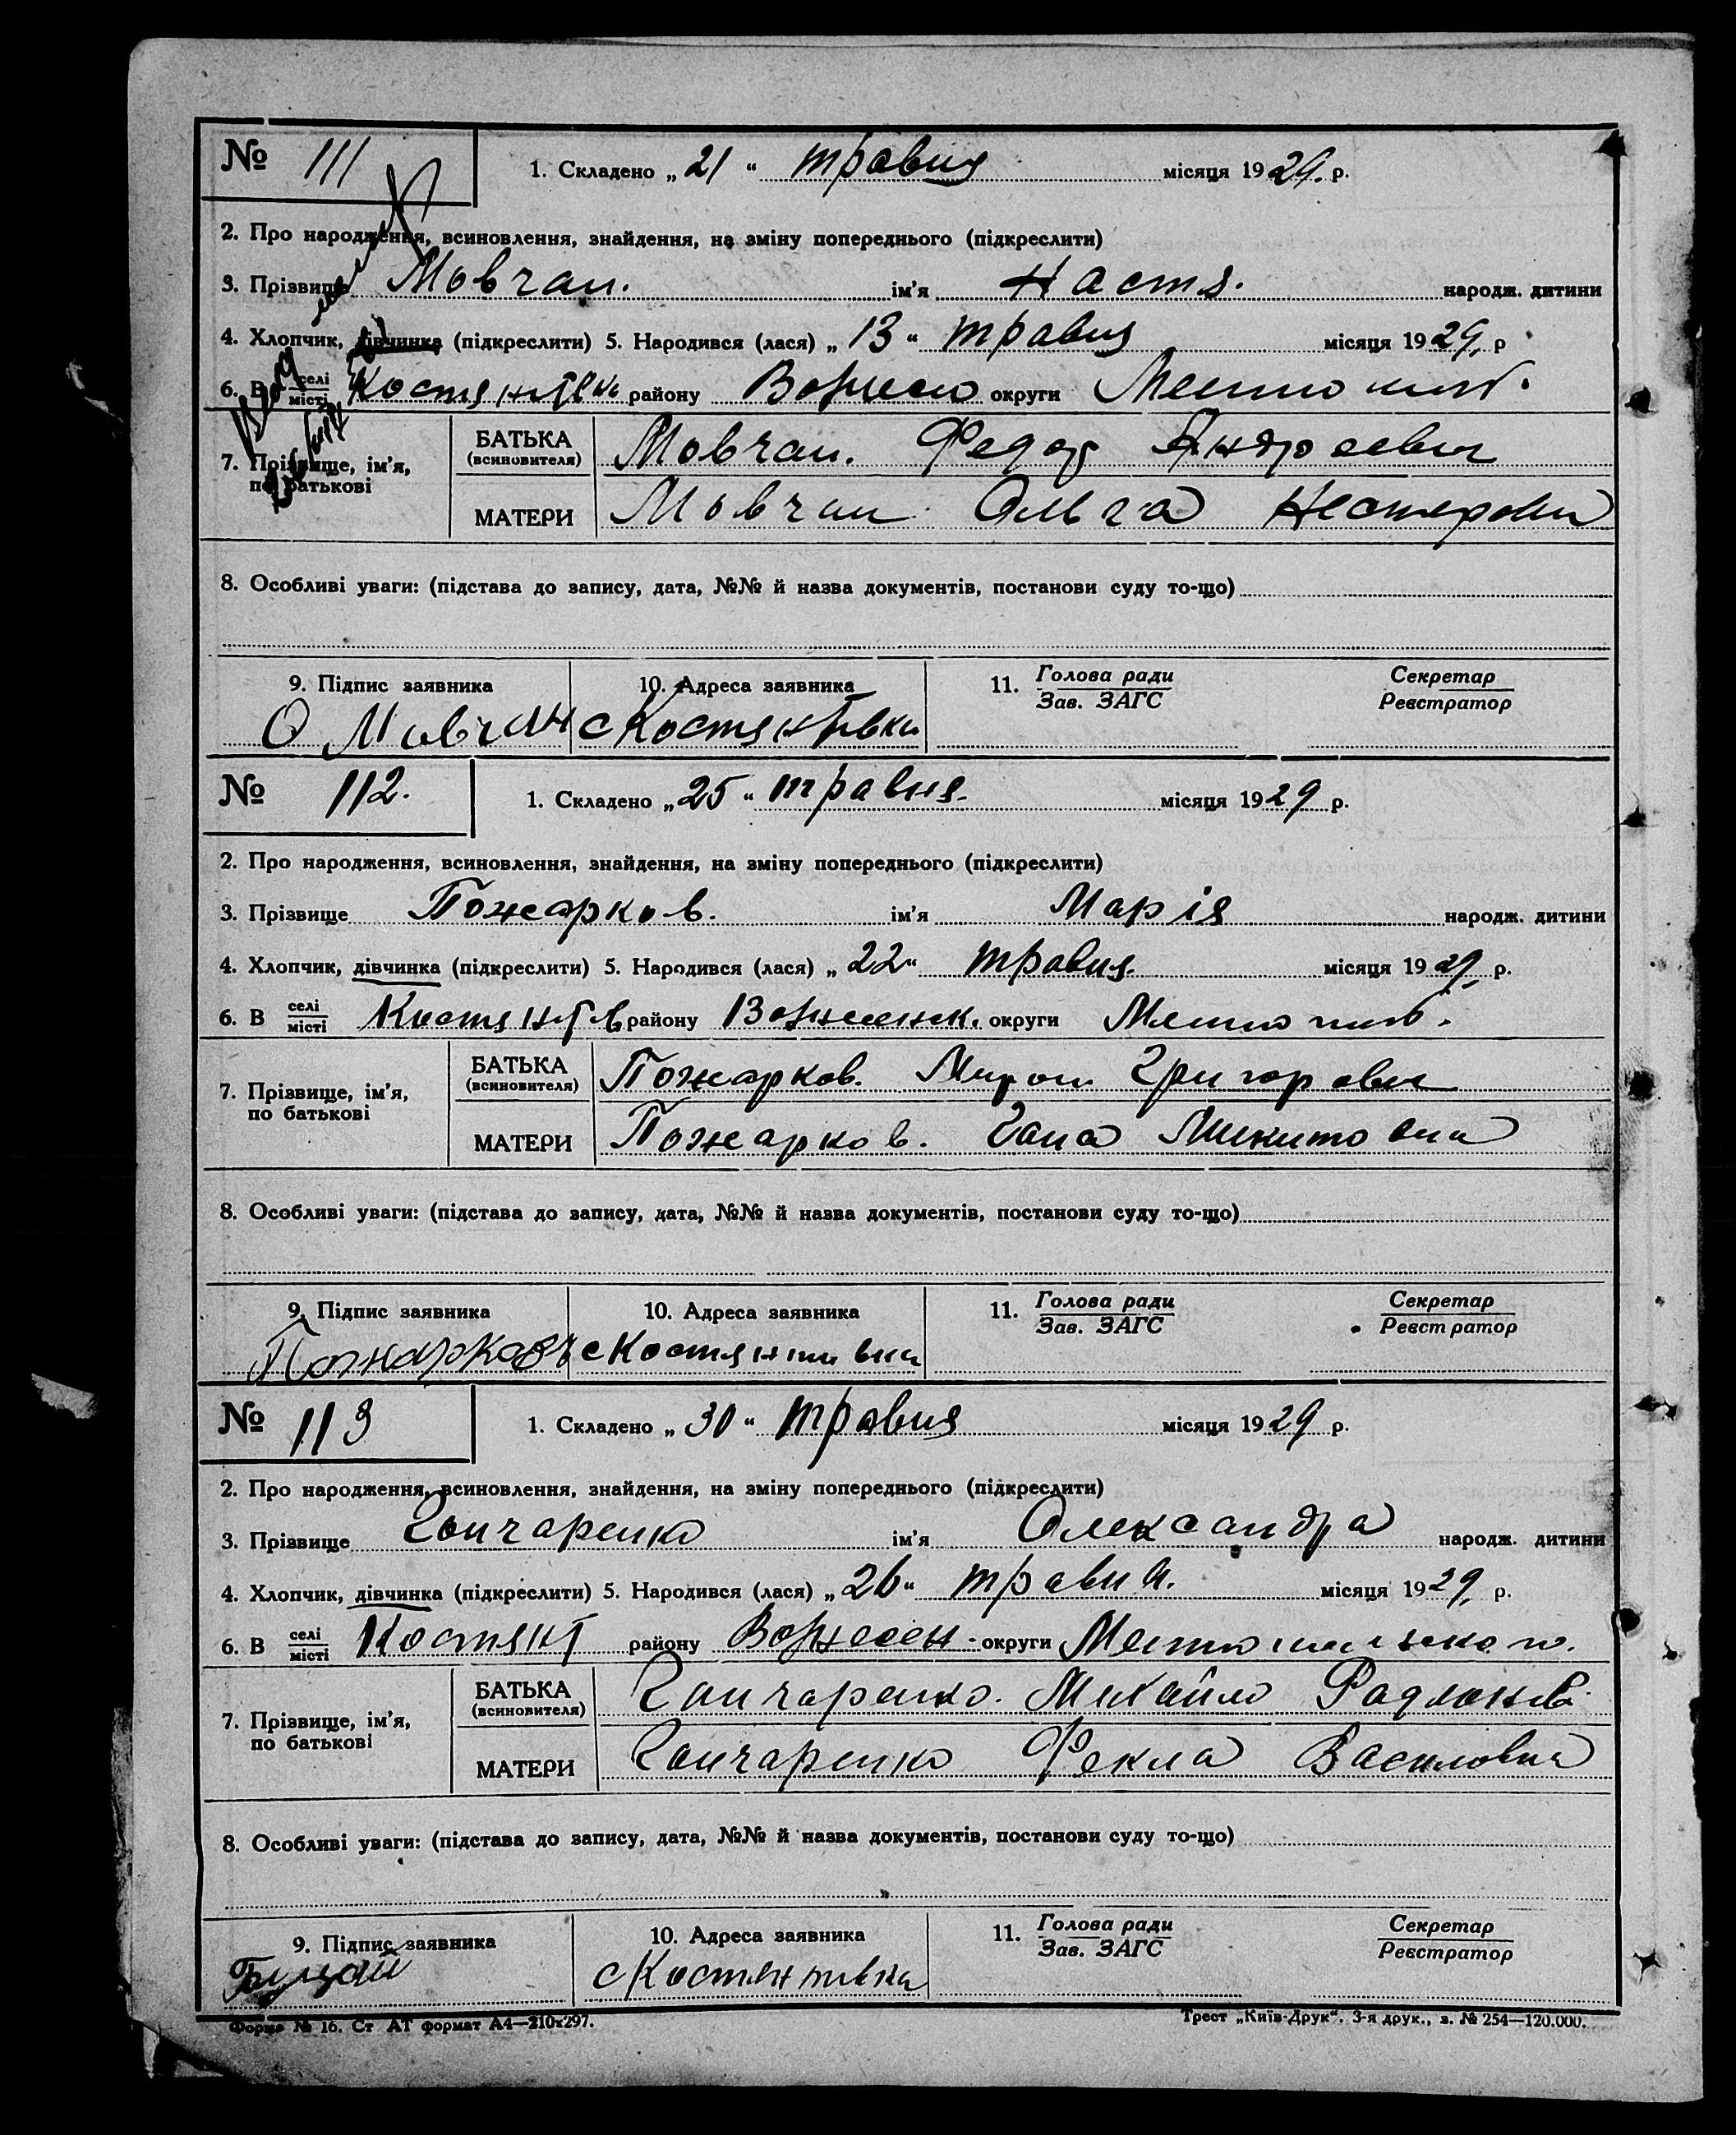 № 111 1. Складено „ 21 “ травня місяця 1929. р.
2. Про народження, всиновлення, знайдення, на зміну попереднього (підкреслити)
3. Прізвище Мовчан. ім’я Настя. народж. дитини
4. Хлопчик, дівчинка (підкреслити) 5. Народився (лася) „ 13 “ травня місяця 1929, р
6. В селі/місті району округи
7. Прізвище, ім’я, по батькові
БАТЬКА (всиновителя) Мовчан. Федор Андреевич
МАТЕРИ Мовчан Ольга
8. Особливі уваги: (підстава до запису, дата, №№ й назва документів, постанови суду то-що)
9. Підпис заявника 10. Адреса заявника 11. Голова ради/Зав. ЗАГС Секретар/Реєстратор
О Мовчан с Костянтівка
№ 112. 1. Складено „ 25 “ травня. місяця 1929 р.
2. Про народження, всиновлення, знайдення, на зміну попереднього (підкреслити)
3. Прізвище Пожарков. ім’я Марія народж. дитини
4. Хлопчик, дівчинка (підкреслити) 5. Народився (лася) „ 22 “ травня. місяця 1929, р.
6. В селі/місті району округи
7. Прізвище, ім’я, по батькові
БАТЬКА (всиновителя) Пожарков. Мирон Григорович
МАТЕРИ Пожарков. Гана Микитовна
8. Особливі уваги: (підстава до запису, дата, №№ й назва документів, постанови суду то-що)
9. Підпис заявника 10. Адреса заявника 11. Голова ради/Зав. ЗАГС Секретар/Реєстратор
Пожарков с Костянтивка
№ 113 1. Складено „ 30 “ травня місяця 1929 р.
2. Про народження, всиновлення, знайдення, на зміну попереднього (підкреслити)
3. Прізвище Гончаренко ім’я Олександра народж. дитини
4. Хлопчик, дівчинка (підкреслити) 5. Народився (лася) „ 26 “ травня. місяця 1929, р.
6. В селі/місті Костянт району округи
7. Прізвище, ім’я, по батькові
БАТЬКА (всиновителя) Гончаренко. Михайло
МАТЕРИ Гончаренко Фекла Василовна
8. Особливі уваги: (підстава до запису, дата, №№ й назва документів, постанови суду то-що)
9. Підпис заявника 10. Адреса заявника 11. Голова ради/Зав. ЗАГС Секретар/Реєстратор
с Костянтивка
Форма № 16. Ст АТ формат А4—210х297. Трест „Київ-Друк“. 3-я друк., з. № 254—120.000.